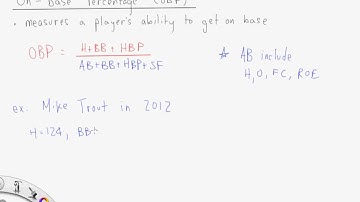 On-Base Percentage (OBP)
• measures a player's ability to get on base
OBP = H+BB+HBP
AB+BB+HBP+SF
* AB include
H, O, FC, ROE
ex: Mike Trout in 2012
H=124, BB